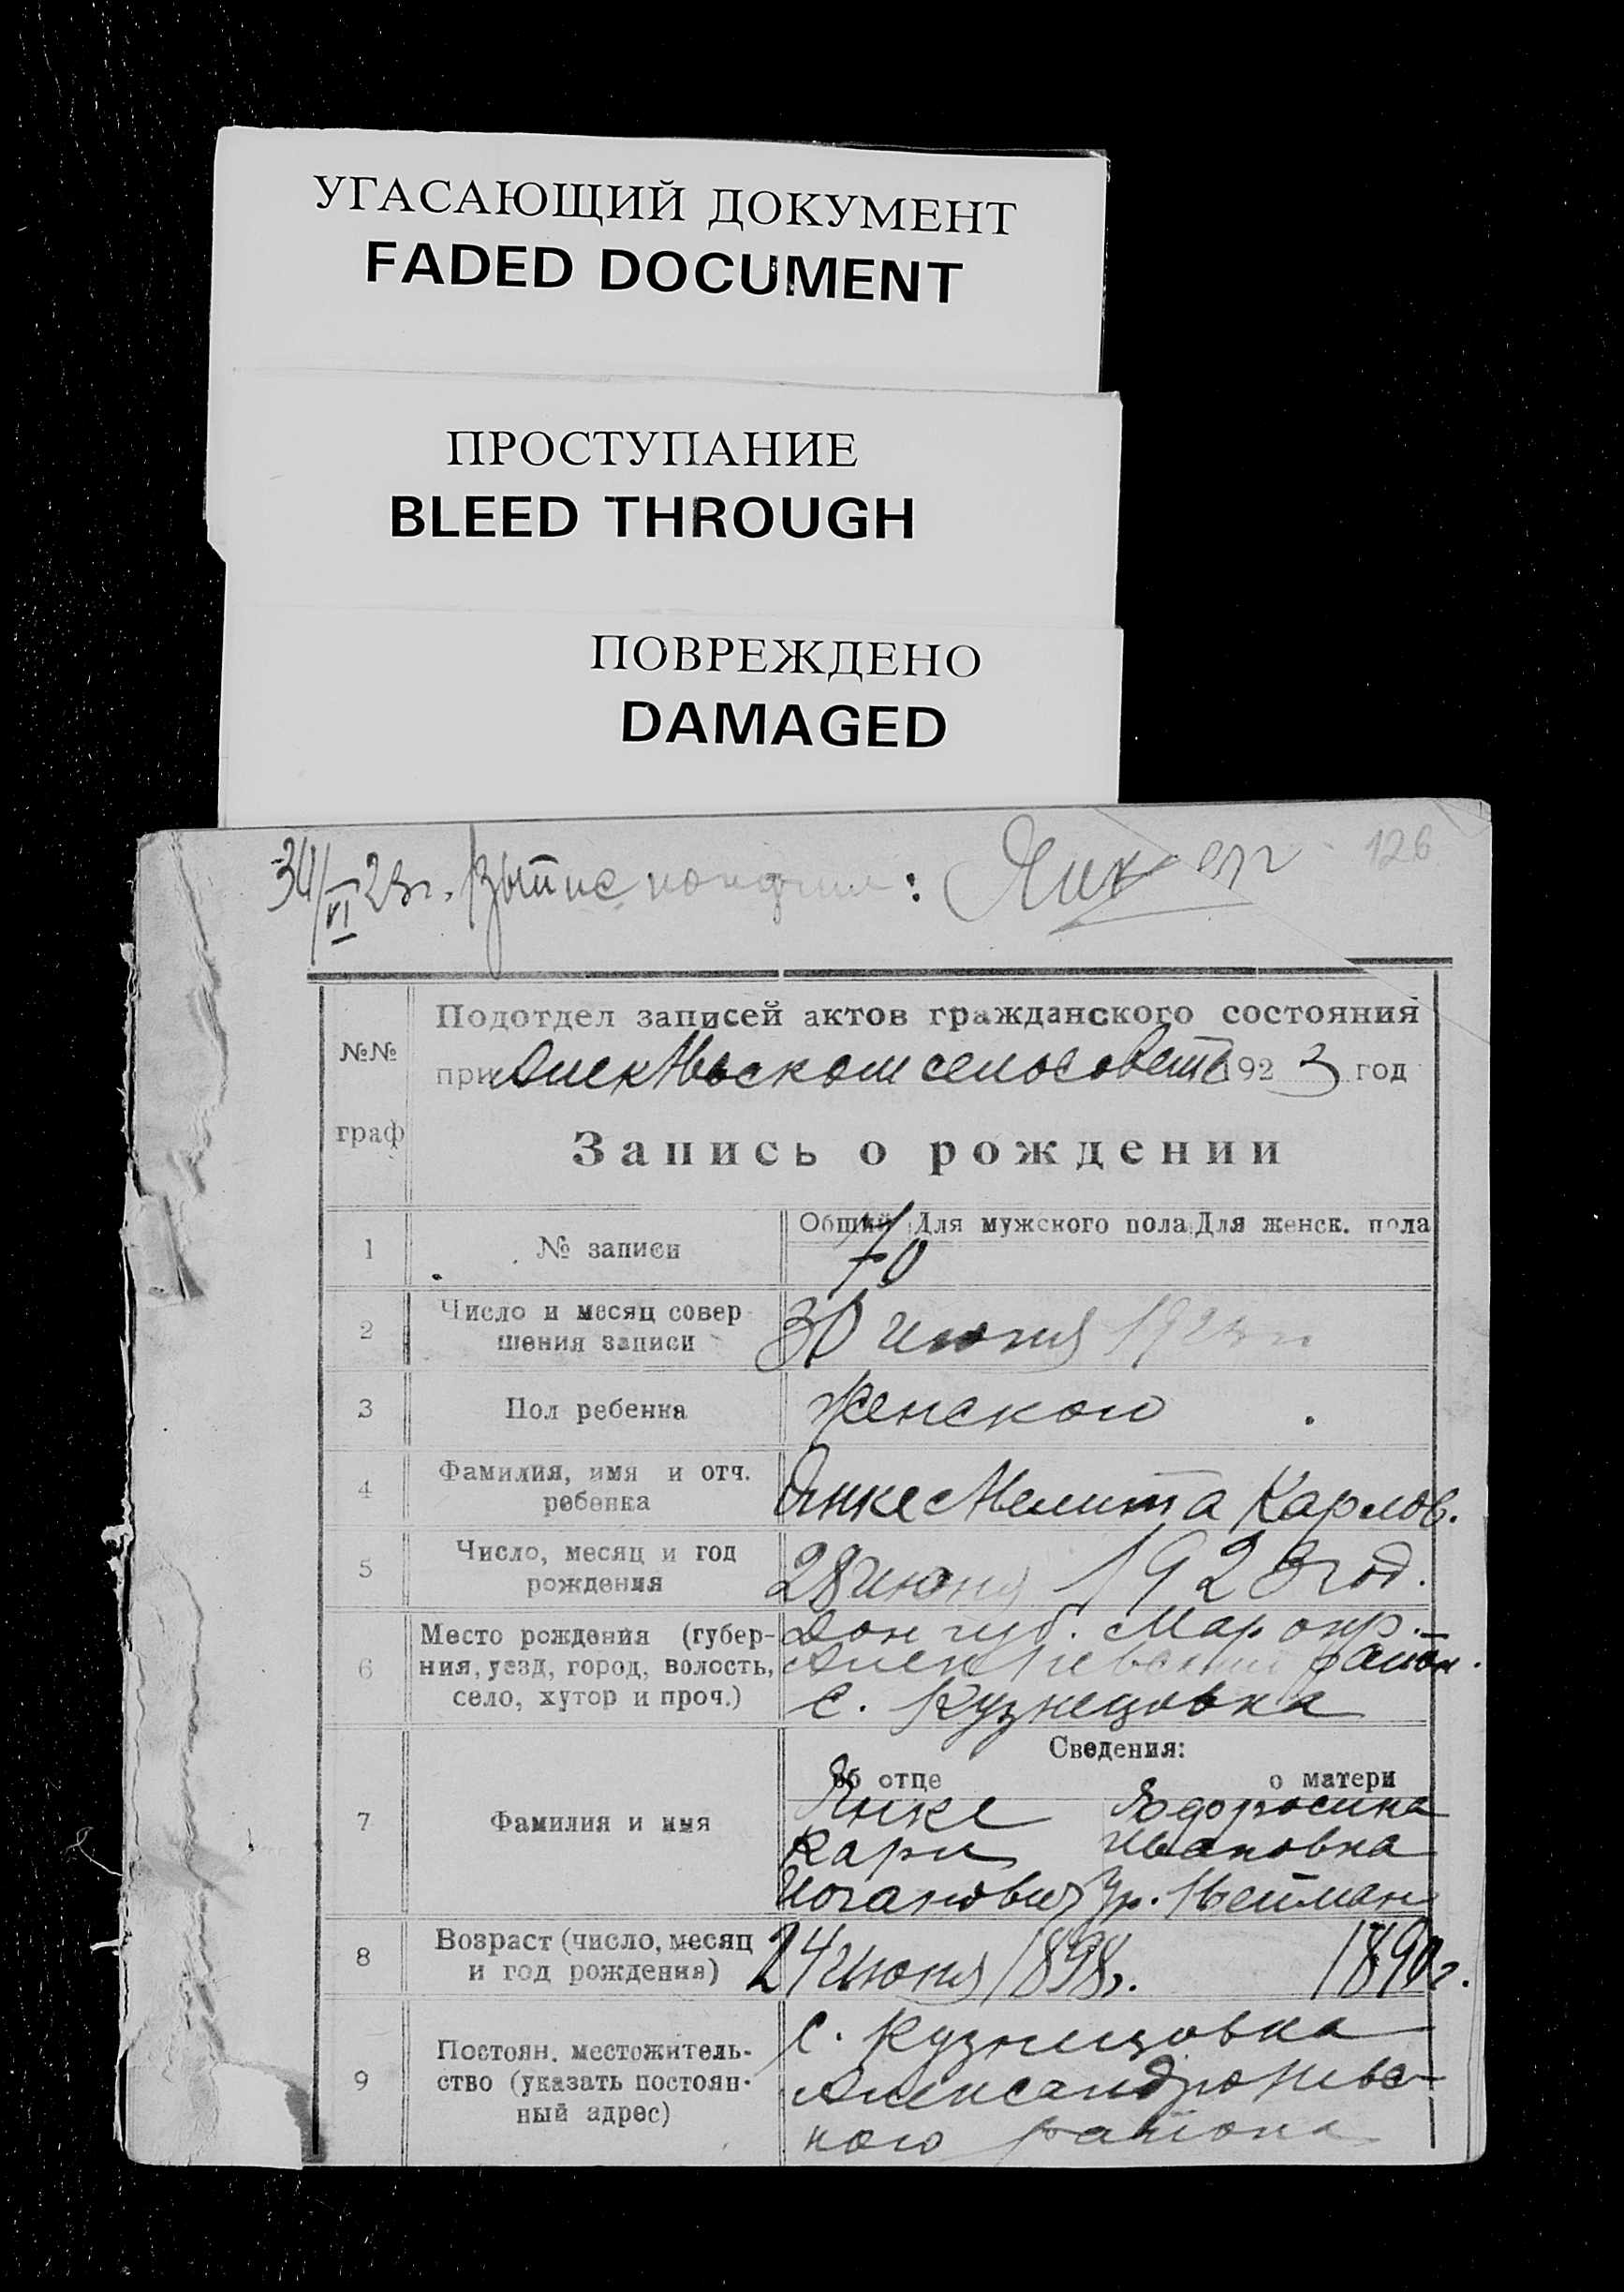 УГАСАЮЩИЙ ДОКУМЕНТ
FADED DOCUMENT
ПРОСТУПАНИЕ
BLEED THROUGH
ПОВРЕЖДЕНО
DAMAGED
126
VI 23г.
№№ граф
Подотдел записей актов гражданского состояния
при сельсовете 1923 год
Запись о рождении
Общий Для мужского пола Для женск. пола
1 № записи 70
2 Число и месяц совер-
шения записи
30 июня 1923 г
3 Пол ребенка женском
4 Фамилия, имя и отч.
ребенка
Янке Мелита Карлов.
5 Число, месяц и год
рождения
28 июня 1923 год.
6 Место рождения (губер-
ния, уезд, город, волость,
село, хутор и проч.)
Дон губ. Мар окр.
район.
с. Кузнецовка
Сведения:
об отце о матери
7 Фамилия и имя
Янке
Карл Ивановна
Иоганович Ур. Нейман
8 Возраст (число, месяц
и год рождения)
24 июня 1898г. 1890г.
9 Постоян. местожитель-
ство (указать постоян-
ный адрес)
с. Кузнецовка
Александроневс-
кого района